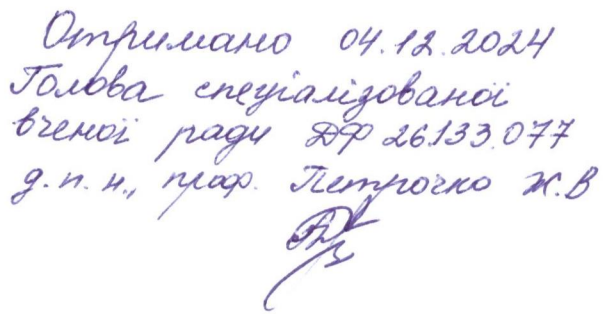 Отримано 04.12.2024
Голова спеціалізованої
вченої ради ДФ 26.133.077
д.п.н., проф. Петрочко Ж.В